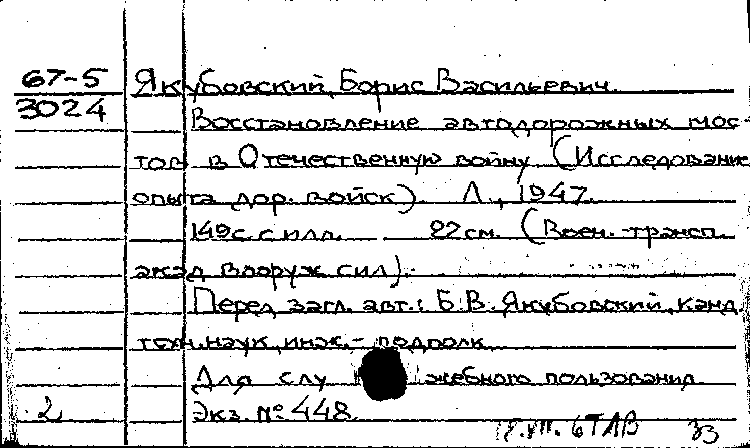 67-5 Якубовский, Борис Васильевич.
3024
Восстановление автодорожных мос-
тов в Отечественную войну (Исследование
опыта дор. войск). Л., 1947.
149 с. с илл. 22 см. (Воен.-трансп.
акад. вооруж. сил).
Перед загл. авт.: Б. В. Якубовский, канд.
техн. наук, инж.-подполк.
Для служебного пользования
2 Экз. № 448.